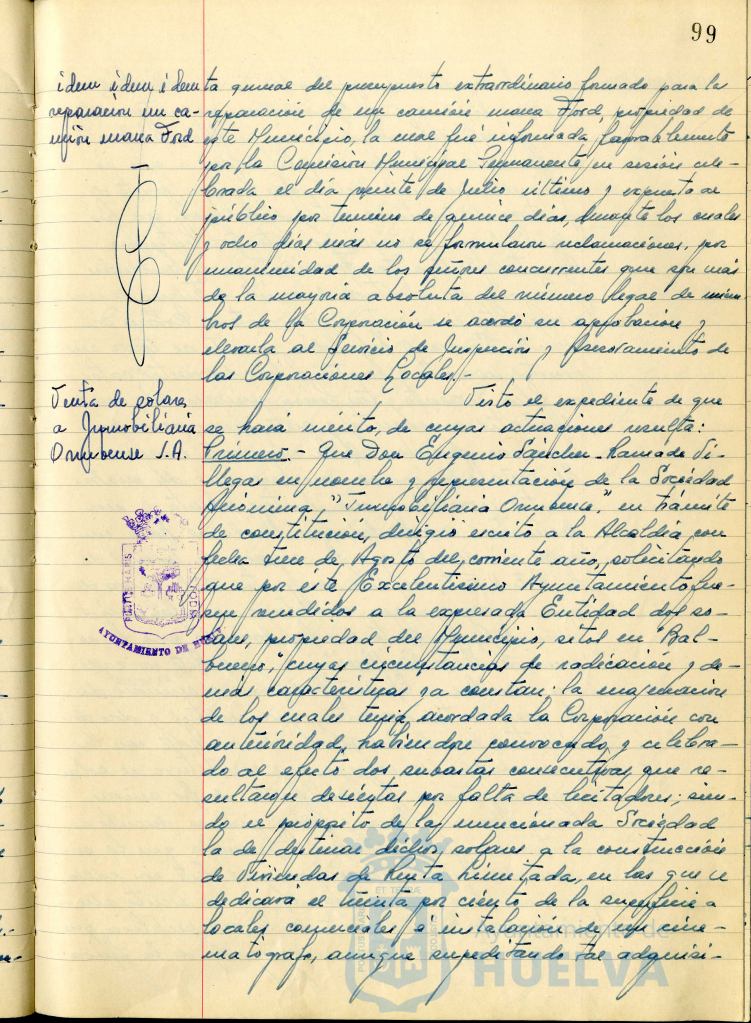 99
idem idem idem
reparación un ca-
mión marca Ford
ta general del presupuesto extraordinario formado para la
reparación de un camión marca Ford, propiedad de
este Municipio, la cual fué informada favorablemente
por la Comisión Municipal Permanente en sesión cele-
brada el día veinte de Julio último y expuesta al
público por termino de quince días, durante los cuales
y ocho días más no se formularon reclamaciones, por
unanimidad de los señores concurrentes que son más
de la mayoría absoluta del número legal de miem-
bros de la Corporación se acordó su aprobación y
elevarla al Servicio de Inspección y Asesoramiento de
las Corporaciones Locales.-
Venta de solares
a Inmobiliaria
Onubense S.A.
Visto el expediente de que
se hará mérito, de cuyas actuaciones resulta:
Primero.- Que Don Eugenio Sánchez-Ramade Vi-
llegas en nombre y representación de la Sociedad
Anónima, "Inmobiliaria Onubense", en trámite
de constitución, dirigió escrito a la Alcaldía con
fecha trece de Agosto del corriente año, solicitando
que por este Excelentísimo Ayuntamiento fue-
sen vendidos a la expresada Entidad dos so-
lares, propiedad del Municipio, sitos en "Bal-
bueno", cuyas circunstancias de radicación y de-
más características ya constan; la enajenación
de los cuales tenía acordada la Corporación con
anterioridad, habiendose convocado y celebra-
do al efecto dos subastas consecutivas que re-
sultaron desiertas por falta de licitadores; sien-
do el propósito de la mencionada Sociedad
la de destinar dichos solares a la construcción
de Viviendas de Renta Limitada, en las que se
dedicará el treinta por ciento de la superficie a
locales comerciales e instalación de un cine-
matógrafo, aunque supeditando tal adquisi-
AYUNTAMIENTO DE
Ayuntamiento de
HUELVA